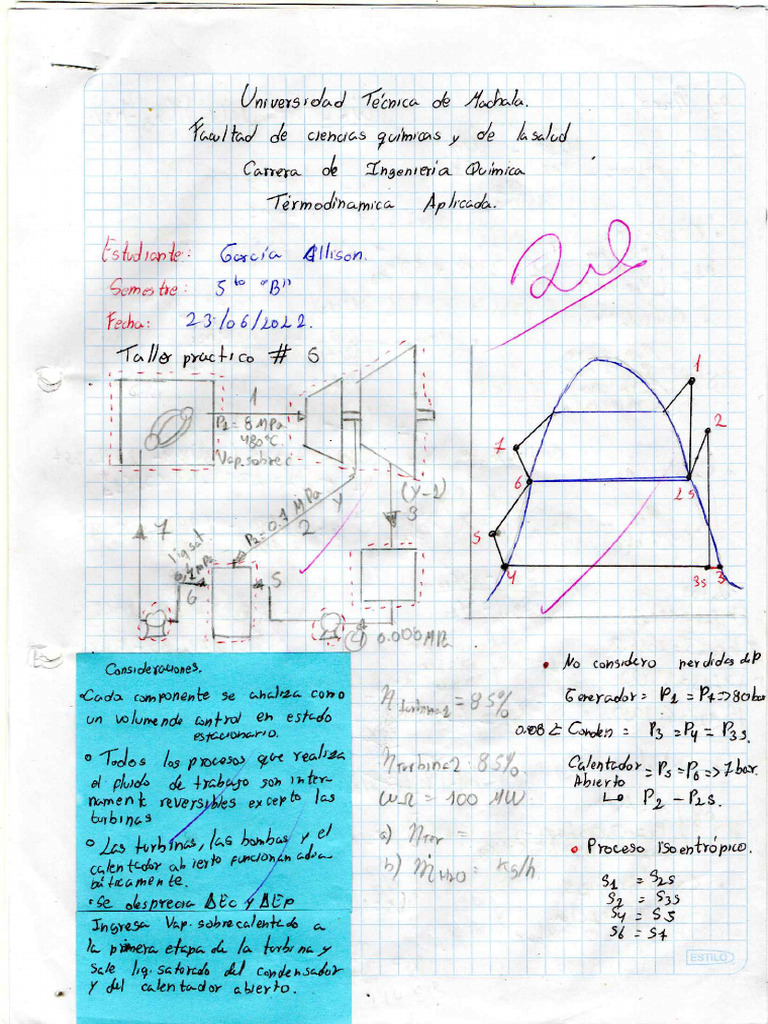 Universidad Técnica de Machala.
Facultad de ciencias químicas y de la salud
Carrera de Ingeniería Química
Térmodinamica Aplicada.
Estudiante: García Allison.
Semestre: 5to "B"
Fecha: 23/06/2022.
Taller práctico # 6
1
P1 = 8 MPa
480°C
Vap. sobrec
7
liq sat
6
P2 = 0.7 MPa
2
y
(y-1)
3
5
4
0.000 MPa
1
2
7
6
2s
5
4
3s
3
Consideraciones.
• Cada componente se analiza como
un volumen de control en estado
estacionario.
• Todos los procesos que realiza
el fluido de trabajo son inter-
namente reversibles excepto las
turbinas
• Las turbinas, las bombas y el
calentador abierto funcionan adia-
báticamente.
• Se desprecia ΔEc y ΔEp
Ingresa Vap. sobrecalentado a
la primera etapa de la turbina y
sale liq. saturado del condensador
y del calentador abierto.
η turbina1 = 85%
η turbina2 = 85%
= 100 MW
a) ηTer =
b) ṁH2O = kg/h
• No considero perdidas de P
Generador = P1 = P7 => 80 bar
0.08 Conden = P3 = P4 = P3s.
Calentador Abierto = P5 = P6 => 7 bar.
↳ P2 - P2s.
• Proceso isoentrópico.
s1 = s2s
s2 = s3s
s4 = s5
s6 = s7
ESTILO